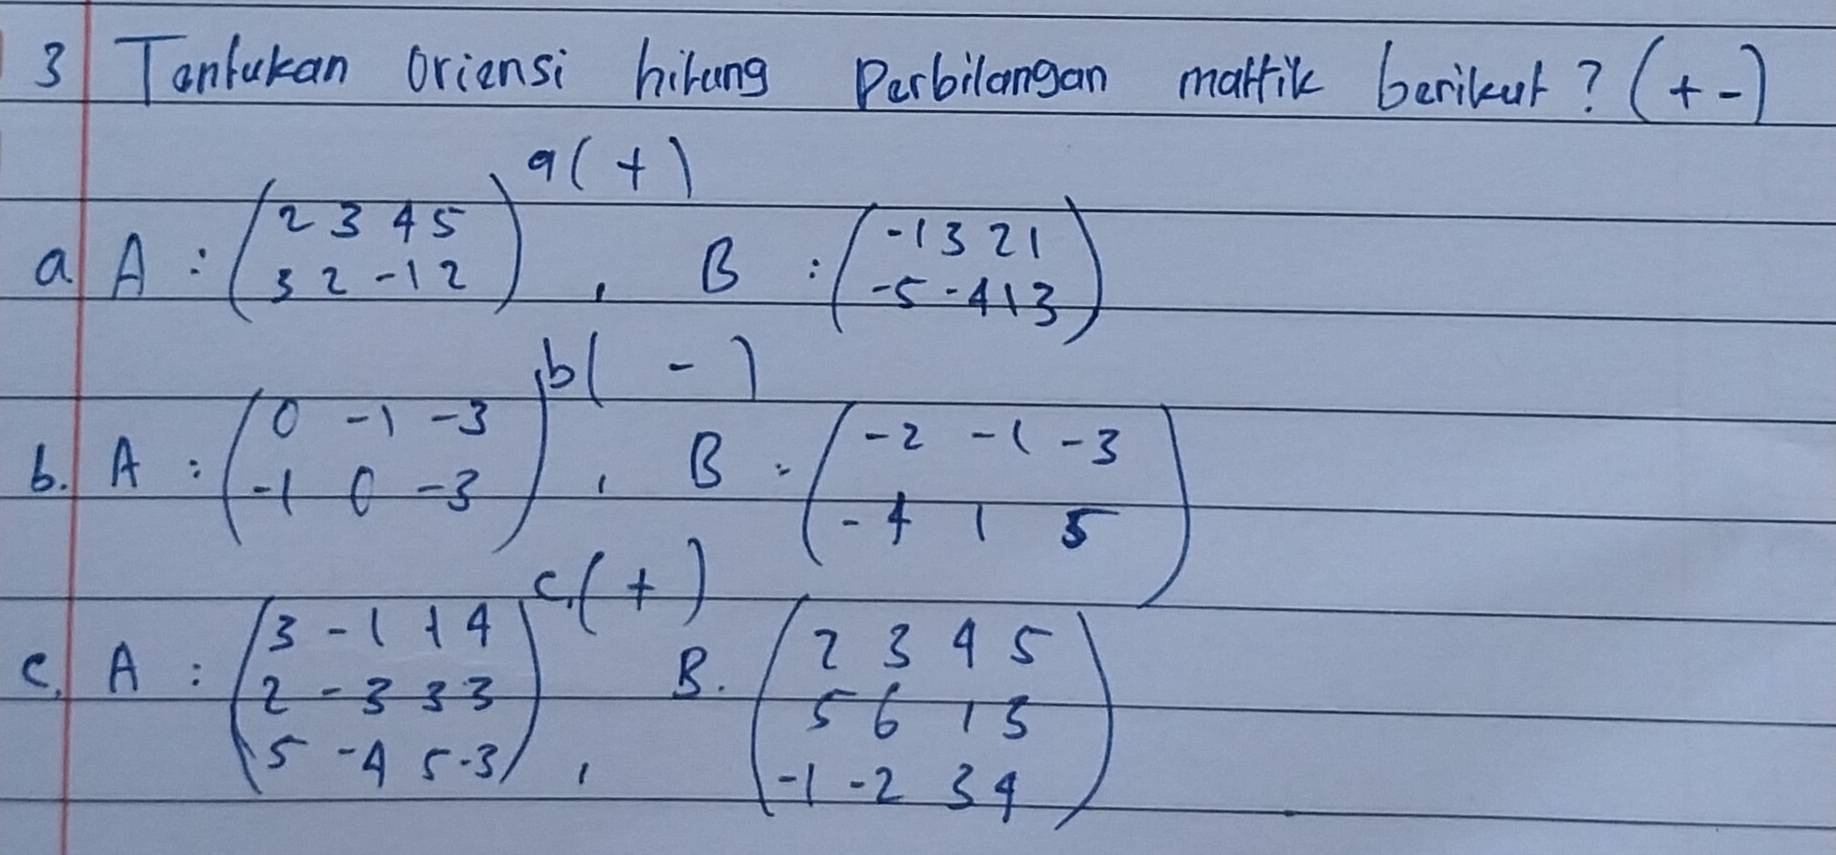 3 Tentukan oriensi hitung Perbilangan mattik berikut? (+ -)
a(+)
a A : (2 3 4 5 , B : (-1 3 2 1
3 2 -1 2) -5 -4 1 3)
b( - )
b. A : (0 -1 -3 , B : (-2 -1 -3
-1 0 -3) -4 1 5)
c.(+)
c, A : (3 -1 1 4 B. (2 3 4 5
2 -3 3 3 5 6 1 5
5 -4 5 -3) , -1 -2 3 4)